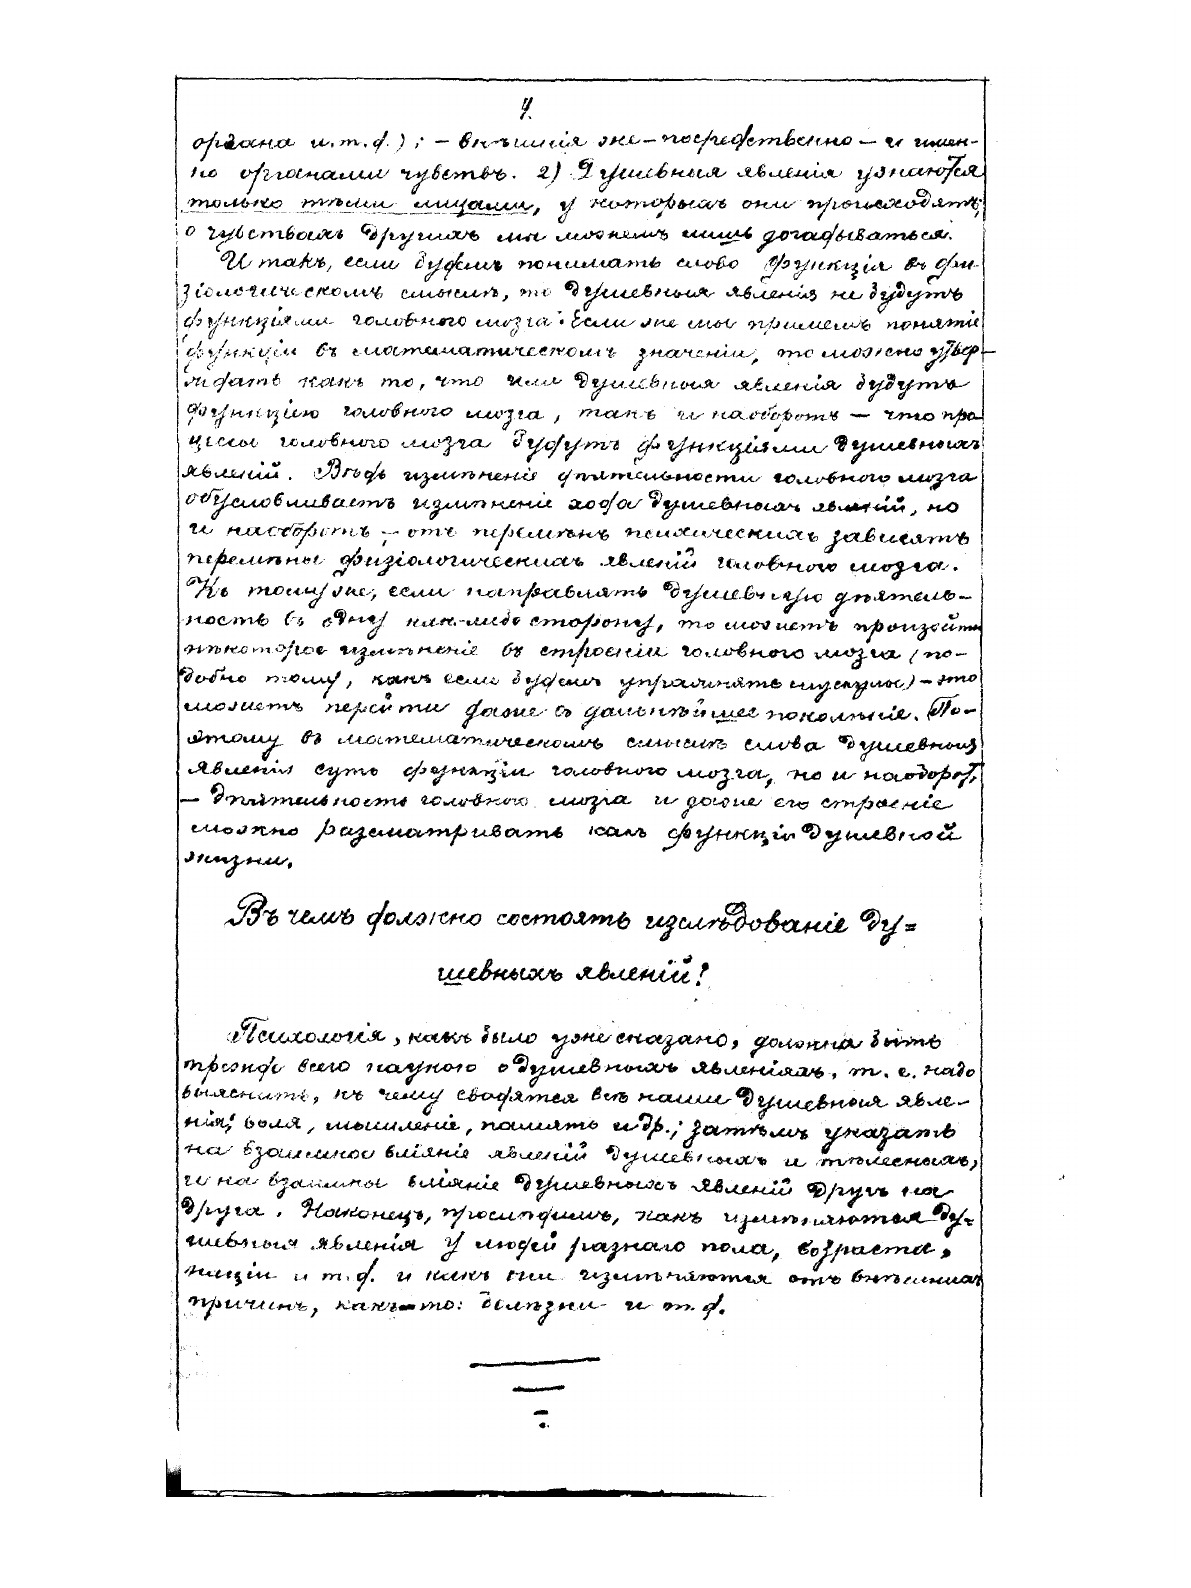 4.
органа и.т.д.); – внѣшнія же – посредственно – и имен-
но органами чувствъ. 2) Душевныя явленія узнаются
только тѣми лицами, у которыхъ они происходятъ;
о чувствахъ другихъ мы можемъ лишь догадываться.
И такъ, если будемъ понимать слово функція въ фи-
зіологическомъ смыслѣ, то душевныя явленія не будутъ
функціями головного мозга. Если же мы примемъ понятіе
функціи въ математическомъ значеніи, то можно утвер-
ждать какъ то, что душевныя явленія будутъ
функціею головного мозга, такъ и наоборотъ – что про-
цессы головного мозга будутъ функціями душевныхъ
явленій. Вѣдь измѣненіе дѣятельности головного мозга
обусловливаетъ измѣненіе хода душевныхъ явленій, но
и наоборотъ – отъ перемѣнъ психическихъ зависятъ
перемѣны физіологическихъ явленій головного мозга.
Къ тому же, если направлять душевную дѣятель-
ность въ одну как.-либо сторону, то можетъ произойти
нѣкоторое измѣненіе въ строеніи головного мозга (по-
добно тому, какъ если будемъ упражнять мускулы) – это
можетъ перейти даже въ дальнѣйшее поколѣніе. По-
этому въ математическомъ смыслѣ слова душевныя
явленія суть функціи головного мозга, но и наоборот,
– дѣятельность головного мозга и даже его строеніе
можно разсматривать какъ функціи душевной
жизни.
Въ чемъ должно состоять изслѣдованіе ду=
шевныхъ явленій?
Психологія, какъ было уже сказано, должна быть
прежде всего наукою о душевныхъ явленіяхъ, т. е. надо
выяснить, къ чему сводятся всѣ наши душевныя явле-
нія; воля, мышленіе, память и др.; затѣмъ указать
на взаимное вліяніе явленій душевныхъ и тѣлесныхъ,
и на взаимны вліяніе душевныхъ явленій другъ на
друга. Наконецъ, прослѣдимъ, какъ измѣняются ду-
шевныя явленія у людей разнаго пола, возраста,
націи и т.д. и какъ они измѣняются отъ внѣшнихъ
причинъ, какъ-то: болѣзни и т.д.